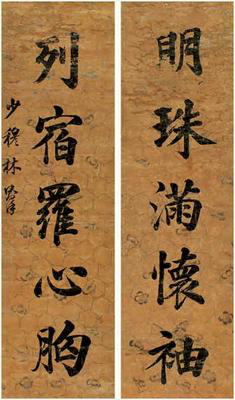 明珠滿懷袖
列宿羅心胸
少穆林則徐